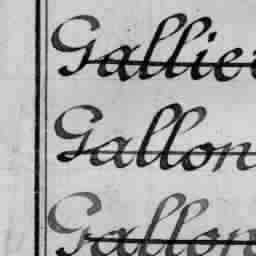 Gallie
Gallon
Gallon